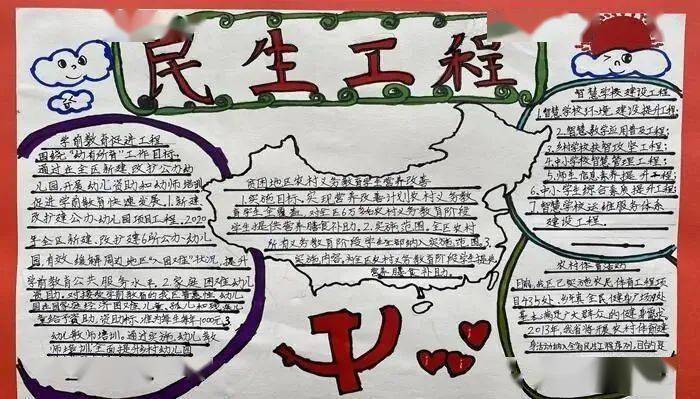 民生工程
学前教育促进工程
围绕“幼有所育”工作目标,
通过在全区新建、改扩公办幼
儿园,开展幼儿资助和幼师培训
促进学前教育快速发展。1.新建、
改扩建公办、幼儿园项目工程,2020
年全区新建、改扩建6所公办幼儿
园,有效缓解周边地区“入园难”状况,提升
学前教育公共服务水平。2.家庭困难幼儿
资助。对接受学前教育的我区普惠性幼儿
园在园家庭经济困难儿童、孤儿和残疾儿
童给予资助,资助标准为每生每年1000元。3.
幼儿教师培训。通过实施幼儿教
师培训,全面提升农村幼儿园
贫困地区农村义务教育学生营养改善
1.实施目标。实现营养改善计划农村义务教
育学生全覆盖,对全区6万名农村义务教育阶段
学生提供营养膳食补助。2.实施范围。全区农村
所有义务教育阶段学生全部纳入实施范围。3.
实施内容。为全区农村义务教育阶段学生提供
营养膳食补助。
智慧学校建设工程
1.智慧学校环境建设提升工程;
2.智慧教学应用普及工程;
3.乡村学校扶智攻坚工程;
4.中小学校智慧管理工程;
5.师生信息素养提升工程;
6.中小学生综合素质提升工程;
7.智慧学校运维服务体系
建设工程。
农村体育活动
目前,我区已实施农民体育工程项
目435处、乡镇全民健身广场19处
基本满足广大群众的健身需求
2013年,我省将开展农村体育健
身活动纳入全省民生工程序列,目的是